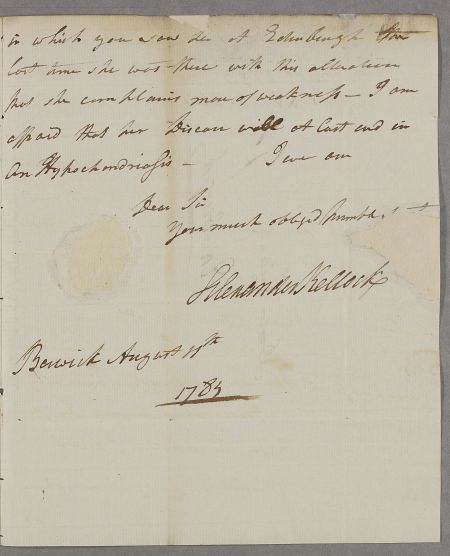 in which you saw her at Edinburgh the
last time she was there with this alteration
that she complains more of weakness – I am
affraid that her Disease will at last end in
An Hypochondriasis – I ever am
Dear Sir
Your much obliged humble
Alexander Kellock
Berwick August
1785